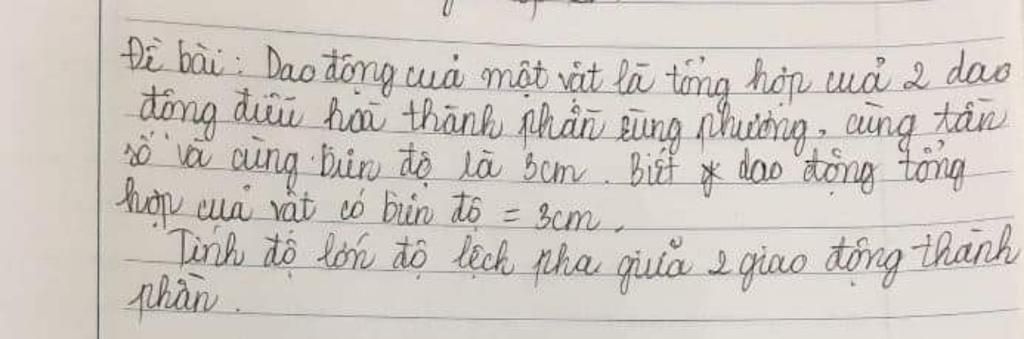 Đề bài: Dao động cuả một vật là tổng hợp cuả 2 dao
động điều hoà thành phần cùng phương, cùng tần
số và cùng biên độ là 3cm. Biết dao động tổng
hợp của vật có biên độ = 3cm.
Tính độ lớn độ lệch pha giữa 2 giao động thành
phần.